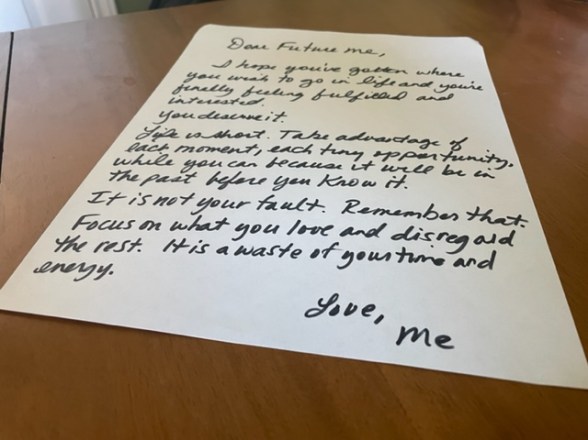 Dear Future me,
I hope you've gotten where
you wish to go in life and you're
finally feeling fulfilled and
interested.
You deserve it.
Life is short. Take advantage of
each moment, each tiny opportunity,
while you can because it will be in
the past before you know it.
It is not your fault. Remember that.
Focus on what you love and disregard
the rest. It is a waste of your time and
energy.
Love,
me